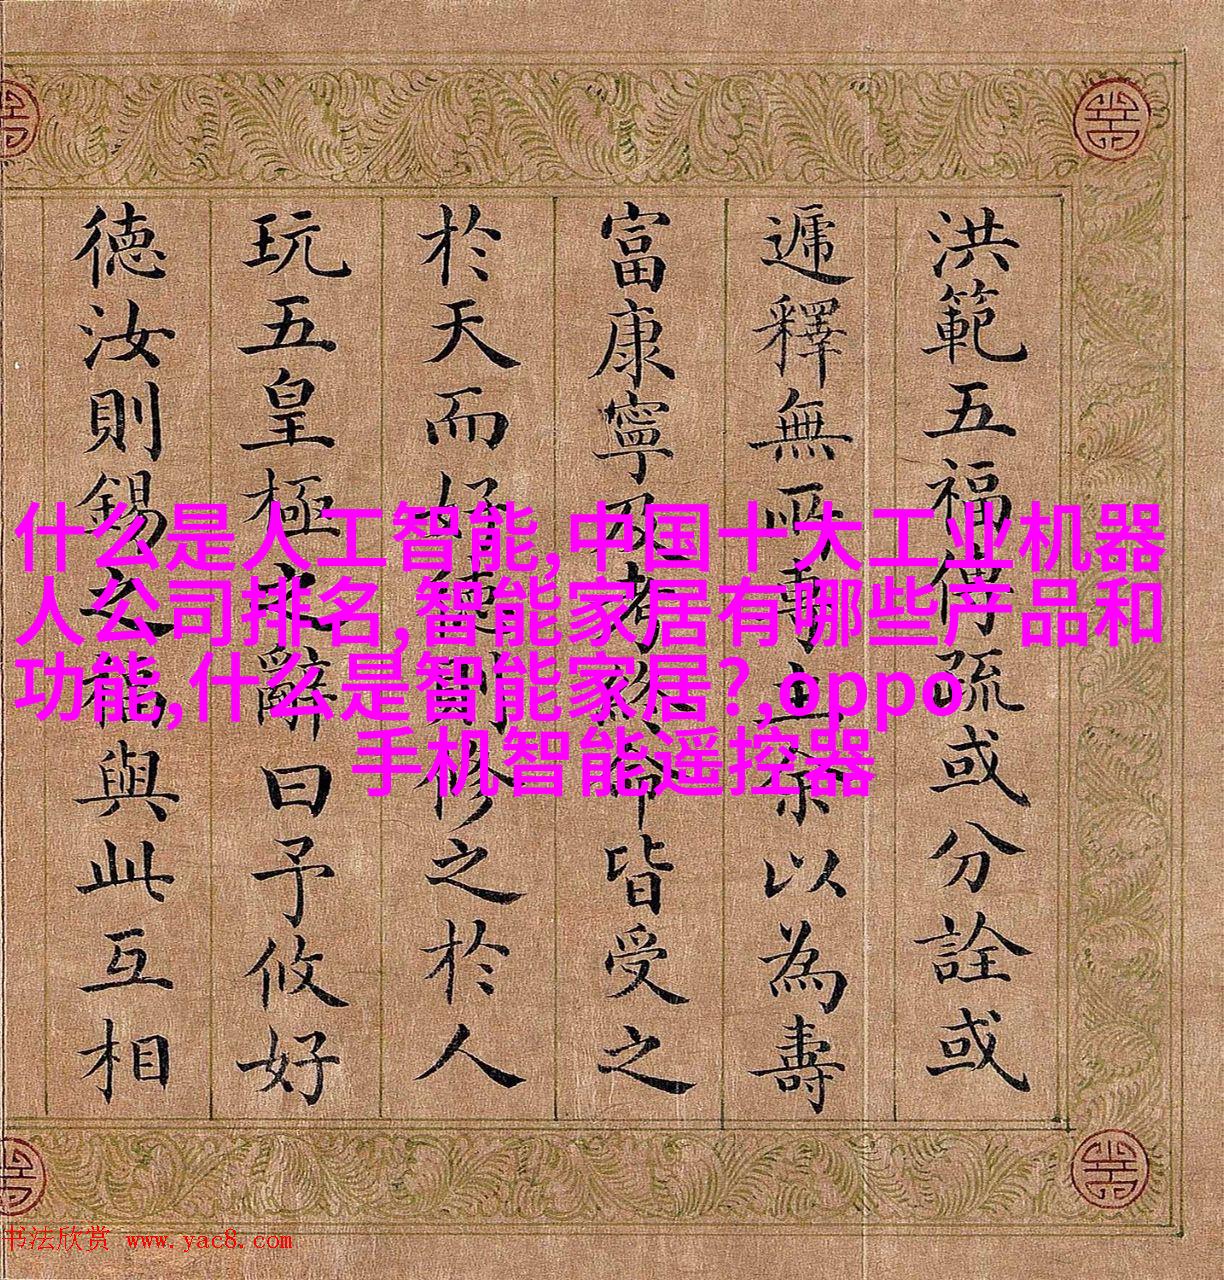 洪範五福傳疏或分詮或
遞釋無所專主余以為壽
富康寧及考終命皆受之
於天而好德則修之於人
玩五皇極之辭曰予攸好
德汝則錫之福與此互相
什么是人工智能,中国十大工业机器
人公司排名,智能家居有哪些产品和
功能,什么是智能家居?,oppo
手机智能遥控器
书法欣赏 www.yac8.com